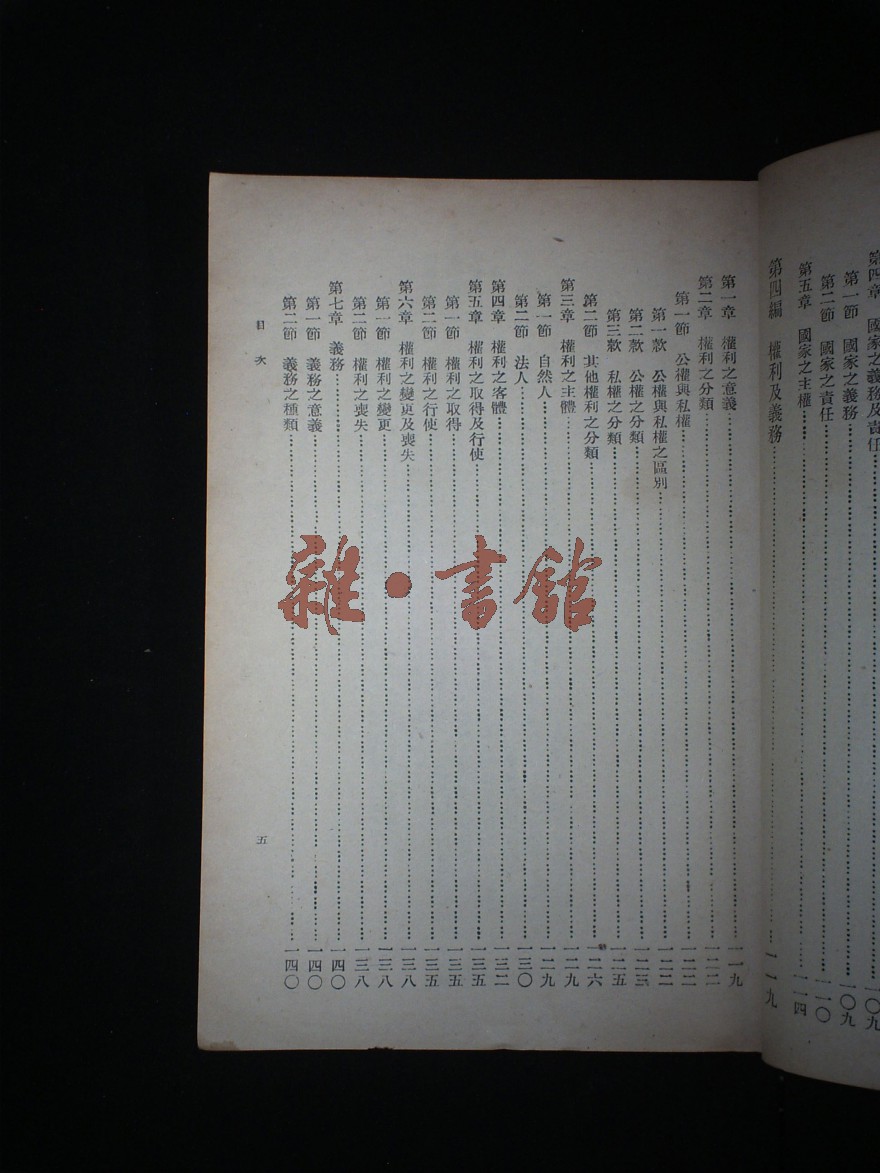 第四章　國家之義務及責任……一〇九
第一節　國家之義務……一〇九
第二節　國家之責任……一一〇
第五章　國家之主權……一一四
第四編　權利及義務……一一九
第一章　權利之意義……一一九
第二章　權利之分類……一二二
第一節　公權與私權……一二二
第一款　公權與私權之區別……一二二
第二款　公權之分類……一二三
第三款　私權之分類……一二五
第二節　其他權利之分類……一二六
第三章　權利之主體……一二九
第一節　自然人……一二九
第二節　法人……一三〇
第四章　權利之客體……一三二
第五章　權利之取得及行使……一三五
第一節　權利之取得……一三五
第二節　權利之行使……一三五
第六章　權利之變更及喪失……一三八
第一節　權利之變更……一三八
第二節　權利之喪失……一三八
第七章　義務……一四〇
第一節　義務之意義……一四〇
第二節　義務之種類……一四〇
目次
五
雜·書館